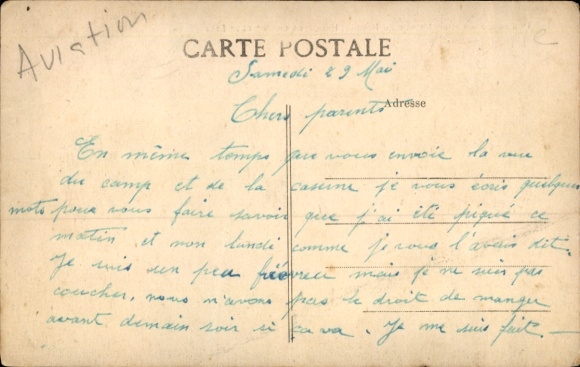 Aviation
CARTE POSTALE
Samedi 29 Mai
Chers parents
Adresse
En même temps que vous envoie la vue
du camp et de la caserne je vous écris quelques
mots pour vous faire savoir que j'ai été piqué ce
matin et non lundi comme je vous l'avais dit.
Je suis un peu fiévreu mais je ne suis pas
coucher, nous n'avons pas le droit de manger
avant demain soir si ça va. Je me suis fait